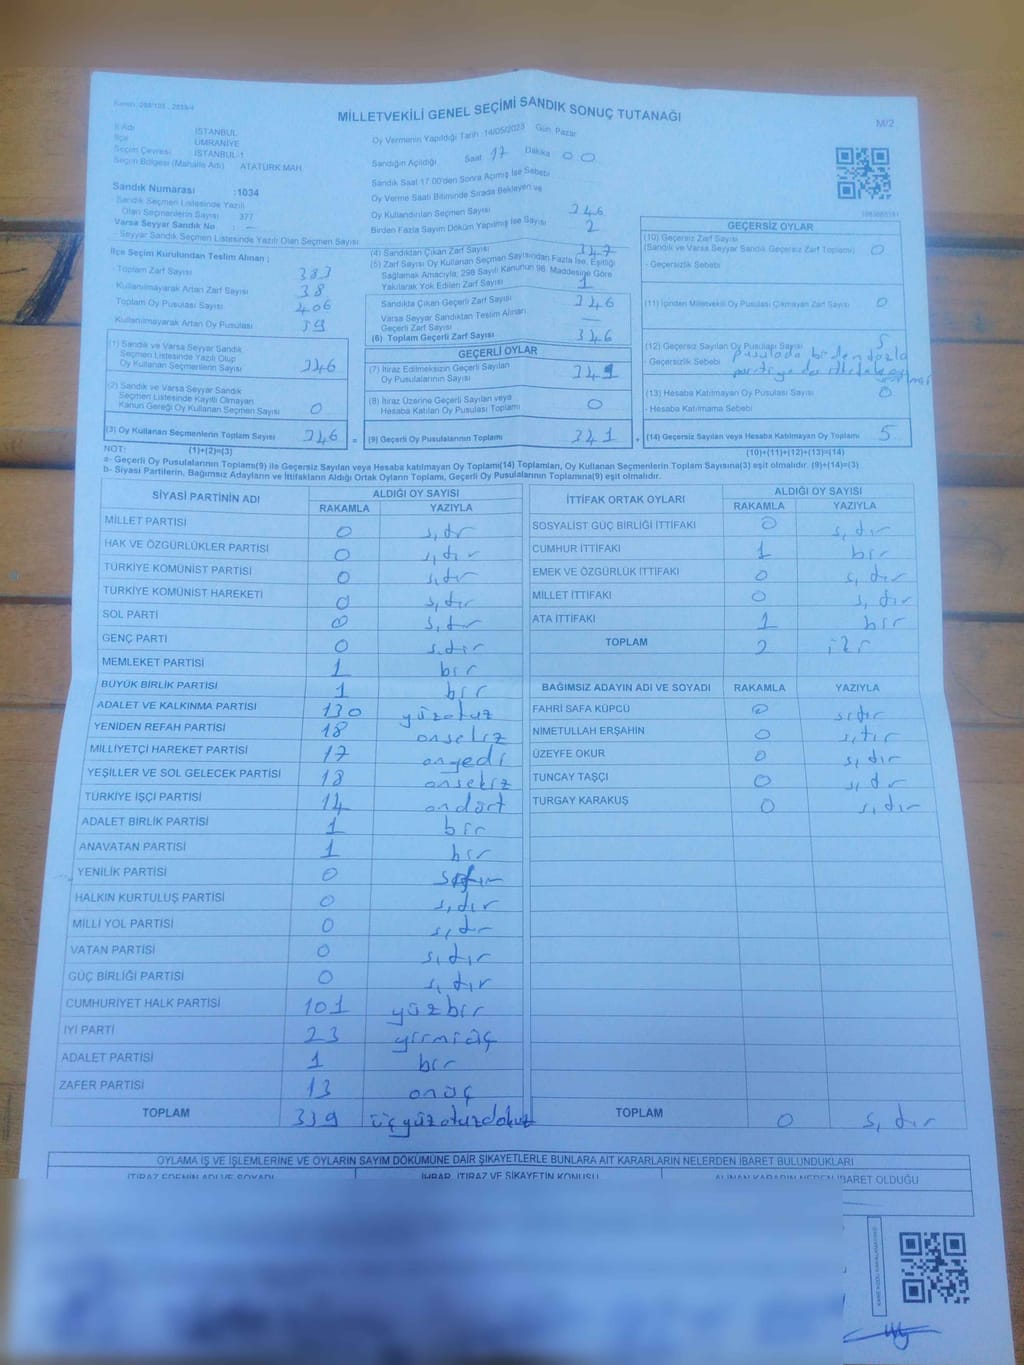 MİLLETVEKİLİ GENEL SEÇİMİ SANDIK SONUÇ TUTANAĞI
M/2
İl Adı İSTANBUL
İlçe ÜMRANİYE
Seçim Çevresi İSTANBUL-1
Seçim Bölgesi (Mahalle Adı) ATATÜRK MAH
Sandık Numarası :1034
Sandık Seçmen Listesinde Yazılı
Olan Seçmenlerin Sayısı 377
Varsa Seyyar Sandık No : -
Seyyar Sandık Seçmen Listesinde Yazılı Olan Seçmen Sayısı
Oy Vermenin Yapıldığı Tarih 14/05/2023 Gün Pazar
Sandığın Açıldığı Saat 17 Dakika 00
Sandık Saat 17.00'den Sonra Açılmış İse Sebebi
Oy Verme Saati Bitiminde Sırada Bekleyen ve
Oy Kullandırılan Seçmen Sayısı 346
Birden Fazla Sayım Döküm Yapılmış İse Sayısı 2
İlçe Seçim Kurulundan Teslim Alınan ;
Toplam Zarf Sayısı 383
Kullanılmayarak Artan Zarf Sayısı 38
Toplam Oy Pusulası Sayısı 406
Kullanılmayarak Artan Oy Pusulası 59
(1) Sandık ve Varsa Seyyar Sandık
Seçmen Listesinde Yazılı Olup
Oy Kullanan Seçmenlerin Sayısı 346
(2) Sandık ve Varsa Seyyar Sandık
Seçmen Listesinde Kayıtlı Olmayan
Kanun Gereği Oy Kullanan Seçmen Sayısı 0
(3) Oy Kullanan Seçmenlerin Toplam Sayısı 346 =
(4) Sandıktan Çıkan Zarf Sayısı 347
(5) Zarf Sayısı Oy Kullanan Seçmen Sayısından Fazla İse, Eşitliği
Sağlamak Amacıyla; 298 Sayılı Kanunun 98. Maddesine Göre
Yakılarak Yok Edilen Zarf Sayısı 1
Sandıkta Çıkan Geçerli Zarf Sayısı 346
Varsa Seyyar Sandıktan Teslim Alınan
Geçerli Zarf Sayısı —
(6) Toplam Geçerli Zarf Sayısı 346
GEÇERLİ OYLAR
(7) İtiraz Edilmeksizin Geçerli Sayılan
Oy Pusulalarının Sayısı 341
(8) İtiraz Üzerine Geçerli Sayılan veya
Hesaba Katılan Oy Pusulası Toplamı 0
(9) Geçerli Oy Pusulalarının Toplamı 341 +
GEÇERSİZ OYLAR
(10) Geçersiz Zarf Sayısı
(Sandık ve Varsa Seyyar Sandık Geçersiz Zarf Toplamı) 0
- Geçersizlik Sebebi
(11) İçinden Milletvekili Oy Pusulası Çıkmayan Zarf Sayısı 0
(12) Geçersiz Sayılan Oy Pusulası Sayısı 5
- Geçersizlik Sebebi pusulada birden fazla
partiye
(13) Hesaba Katılmayan Oy Pusulası Sayısı 0
- Hesaba Katılmama Sebebi
(14) Geçersiz Sayılan veya Hesaba Katılmayan Oy Toplamı 5
NOT: (1)+(2)=(3)
(10)+(11)+(12)+(13)=(14)
a- Geçerli Oy Pusulalarının Toplamı(9) ile Geçersiz Sayılan veya Hesaba katılmayan Oy Toplamı(14) Toplamları, Oy Kullanan Seçmenlerin Toplam Sayısına(3) eşit olmalıdır. (9)+(14)=(3)
b- Siyasi Partilerin, Bağımsız Adayların ve İttifakların Aldığı Ortak Oyların Toplamı, Geçerli Oy Pusulalarının Toplamına(9) eşit olmalıdır.
SİYASİ PARTİNİN ADI ALDIĞI OY SAYISI
RAKAMLA YAZIYLA
MİLLET PARTİSİ 0 sıfır
HAK VE ÖZGÜRLÜKLER PARTİSİ 0 sıfır
TÜRKİYE KOMÜNİST PARTİSİ 0 sıfır
TÜRKİYE KOMÜNİST HAREKETİ 0 sıfır
SOL PARTİ 0 sıfır
GENÇ PARTİ 0 sıfır
MEMLEKET PARTİSİ 1 bir
BÜYÜK BİRLİK PARTİSİ 1 bir
ADALET VE KALKINMA PARTİSİ 130 yüzotuz
YENİDEN REFAH PARTİSİ 18 onsekiz
MİLLİYETÇİ HAREKET PARTİSİ 17 onyedi
YEŞİLLER VE SOL GELECEK PARTİSİ 18 onsekiz
TÜRKİYE İŞÇİ PARTİSİ 14 ondört
ADALET BİRLİK PARTİSİ 1 bir
ANAVATAN PARTİSİ 1 bir
YENİLİK PARTİSİ 0 sıfır
HALKIN KURTULUŞ PARTİSİ 0 sıfır
MİLLİ YOL PARTİSİ 0 sıfır
VATAN PARTİSİ 0 sıfır
GÜÇ BİRLİĞİ PARTİSİ 0 sıfır
CUMHURİYET HALK PARTİSİ 101 yüzbir
İYİ PARTİ 23 yirmiüç
ADALET PARTİSİ 1 bir
ZAFER PARTİSİ 13 onüç
TOPLAM 339 üçyüzotuzdokuz
İTTİFAK ORTAK OYLARI ALDIĞI OY SAYISI
RAKAMLA YAZIYLA
SOSYALİST GÜÇ BİRLİĞİ İTTİFAKI 0 sıfır
CUMHUR İTTİFAKI 1 bir
EMEK VE ÖZGÜRLÜK İTTİFAKI 0 sıfır
MİLLET İTTİFAKI 0 sıfır
ATA İTTİFAKI 1 bir
TOPLAM 2 iki
BAĞIMSIZ ADAYIN ADI VE SOYADI RAKAMLA YAZIYLA
FAHRİ SAFA KÜPCÜ 0 sıfır
NİMETULLAH ERŞAHİN 0 sıfır
ÜZEYFE OKUR 0 sıfır
TUNCAY TAŞÇI 0 sıfır
TURGAY KARAKUŞ 0 sıfır
TOPLAM 0 sıfır
OYLAMA İŞ VE İŞLEMLERİNE VE OYLARIN SAYIM DÖKÜMÜNE DAİR ŞİKAYETLERLE BUNLARA AİT KARARLARIN NELERDEN İBARET BULUNDUKLARI
İTİRAZ EDENİN ADI VE SOYADI İHBAR, İTİRAZ VE ŞİKAYETİN KONUSU ALINAN KARARIN NEDEN İBARET OLDUĞU